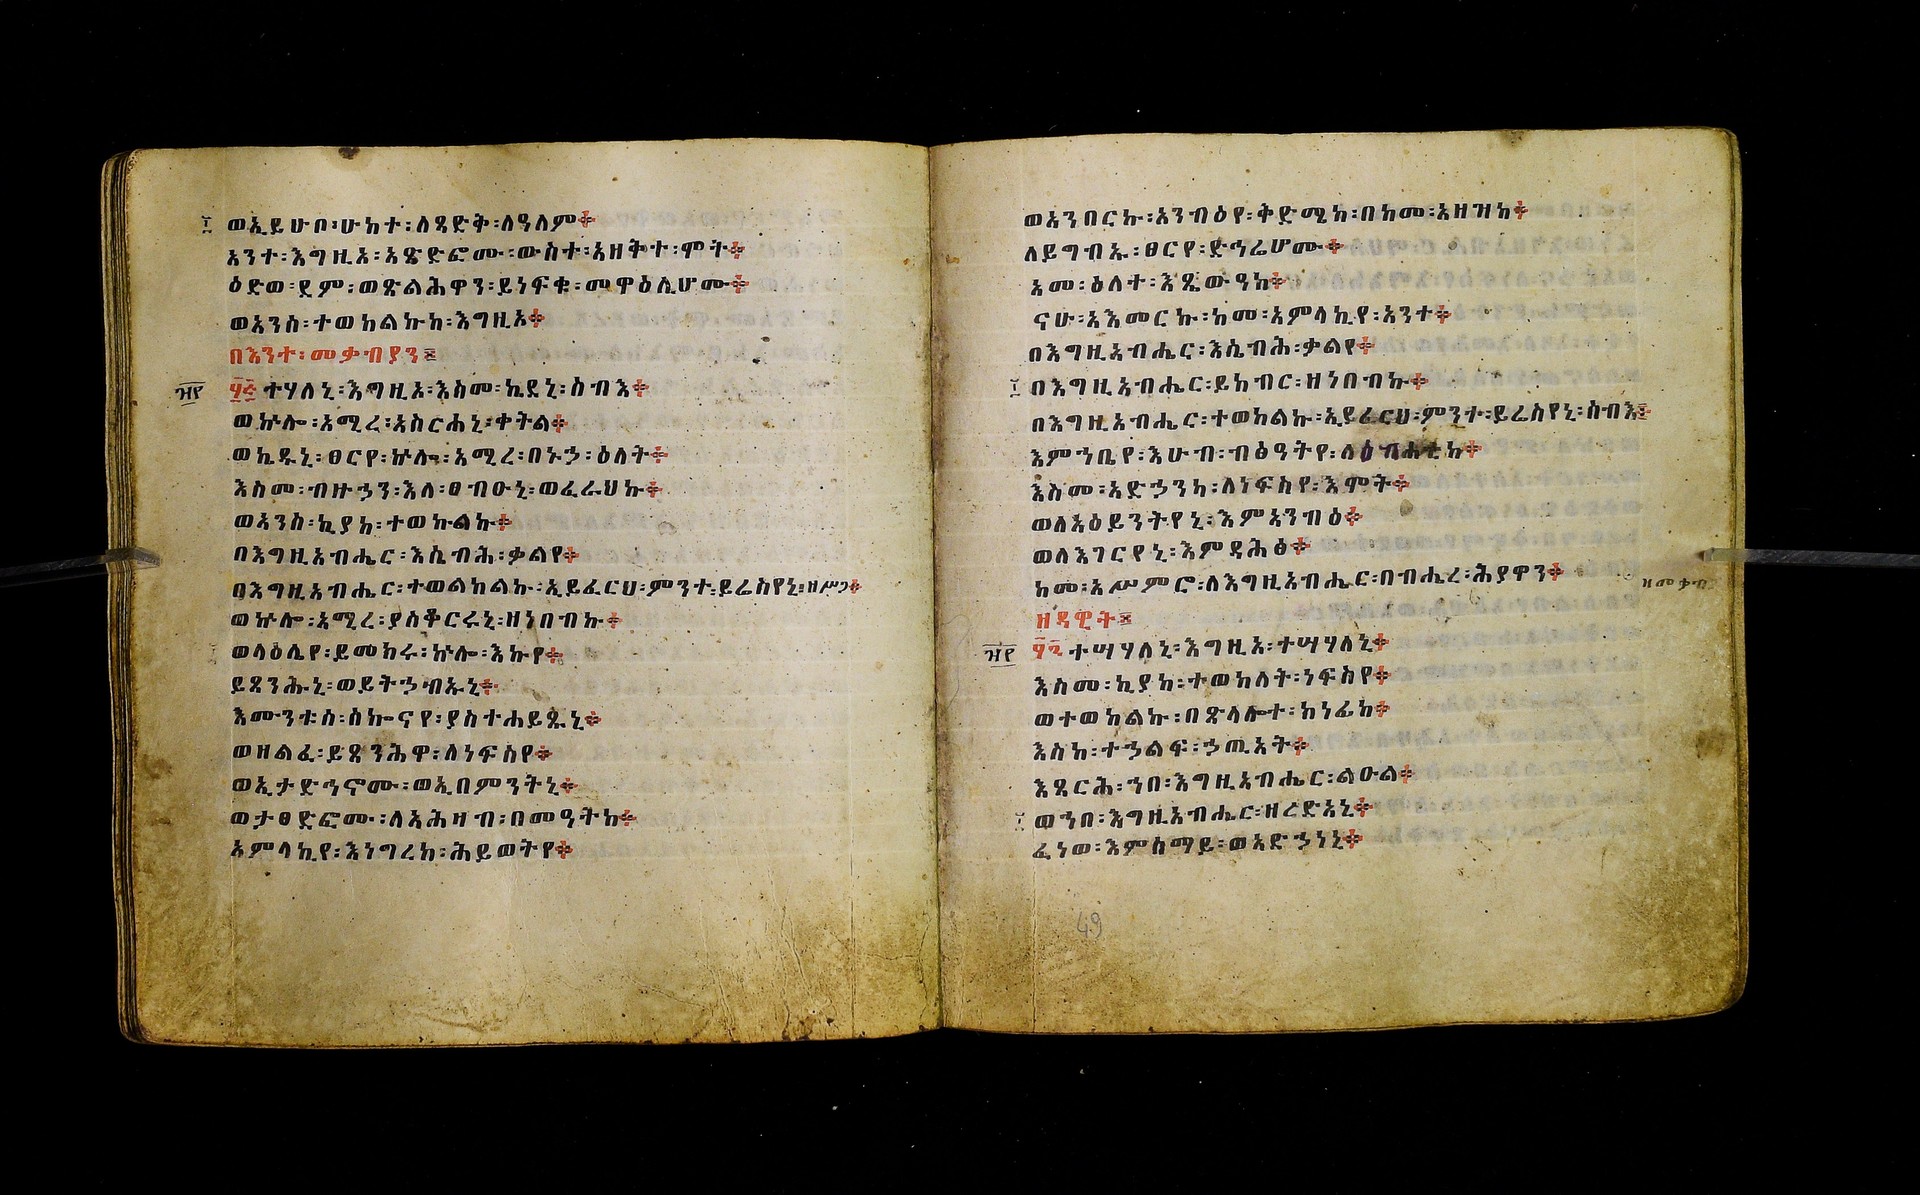 ወኢይሁቦ፡ሁከተ፡ለጻድቅ፡ለዓለም፨
አንተ፡እግዚኦ፡አጽድፎሙ፡ውስተ፡አዘቅተ፡ሞት፨
ዕድወ፡ደም፡ወጽልሕዋን፡ይነፍቁ፡መዋዕሊሆሙ፨
ወአንስ፡ተወከልኩከ፡እግዚኦ፨
በእንተ፡መቃብያን፨
፶፭ ተሃለኒ፡እግዚኦ፡እስመ፡ኬደኒ፡ስብእ፨
ወኵሎ፡አሚረ፡አስርሐኒ፡ቀትል፨
ወኬዱኒ፡ፀርየ፡ኵሎ፡አሚረ፡በኑኃ፡ዕለት፨
እስመ፡ብዙኃን፡እለ፡ፀብዑኒ፡ወፈራህኩ፨
ወአንስ፡ኪያከ፡ተወኩልኩ፨
በእግዚአብሔር፡እሴብሕ፡ቃልየ፨
በእግዚአብሔር፡ተወልከልኩ፡ኢይፈርህ፡ምንተ፡ይሬስየኒ፡ዘሥጋ፨
ወኵሎ፡አሚረ፡ያስቆርሩኒ፡ዘነበብኩ፨
ወላዕሌየ፡ይመክሩ፡ኵሎ፡እኩየ፨
ይጸንሑኒ፡ወይትኃብኡኒ፨
እሙንቱሰ፡ሰኰናየ፡ያስተሐይጹኒ፨
ወዘልፈ፡ይጸንሕዋ፡ለነፍስየ፨
ወኢታድኅኖሙ፡ወኢበምንትኒ፨
ወታፀድፎሙ፡ለአሕዛብ፡በመዓትከ፨
አምላኪየ፡እነግረከ፡ሕይወትየ፨
ወአንበርኩ፡አንብዕየ፡ቅድሜከ፡በከመ፡አዘዝከ፨
ለይግብኡ፡ፀርየ፡ድኅሬሆሙ፨
አመ፡ዕለተ፡እጼውዓከ፨
ናሁ፡አእመርኩ፡ከመ፡አምላኪየ፡አንተ፨
በእግዚአብሔር፡እሴብሕ፡ቃልየ፨
በእግዚአብሔር፡ይከብር፡ዘነበብኩ፨
በእግዚአብሔር፡ተወከልኩ፡ኢይፈርህ፡ምንተ፡ይሬስየኒ፡ስብእ፨
እምኀቤየ፡እሁብ፡ብፅዓትየ፡ለዕብሐቲከ፨
እስመ፡አድኃንካ፡ለነፍስየ፡እሞት፨
ወለአዕይንትየኒ፡እምአንብዕ፨
ወለእገርየኒ፡እምዳሕፅ፨
ከመ፡አሥምሮ፡ለእግዚአብሔር፡በብሔረ፡ሕያዋን፨
ዘዳዊት፨
፶፮ ተሣሃለኒ፡እግዚኦ፡ተሣሃለኒ፨
እስመ፡ኪያከ፡ተወከለት፡ነፍስየ፨
ወተወከልኩ፡በጽላሎተ፡ክነፊከ፨
እስከ፡ተኃልፍ፡ኃጢአት፨
እጸርሕ፡ኀበ፡እግዚአብሔር፡ልዑል፨
ወኀበ፡እግዚአብሔር፡ዘረድአኒ፨
ፈነወ፡እምሰማይ፡ወአድኃነኒ፨
49